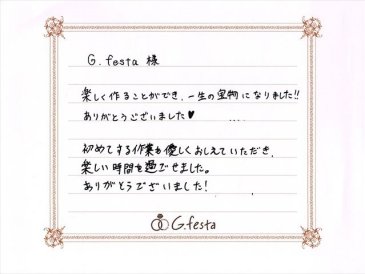 G.festa 様
楽しく作ることができ、一生の宝物になりました!!
ありがとうございました♥ ....
初めてする作業も優しくおしえていただき、
楽しい時間を過ごせました。
ありがとうございました!
G.festa